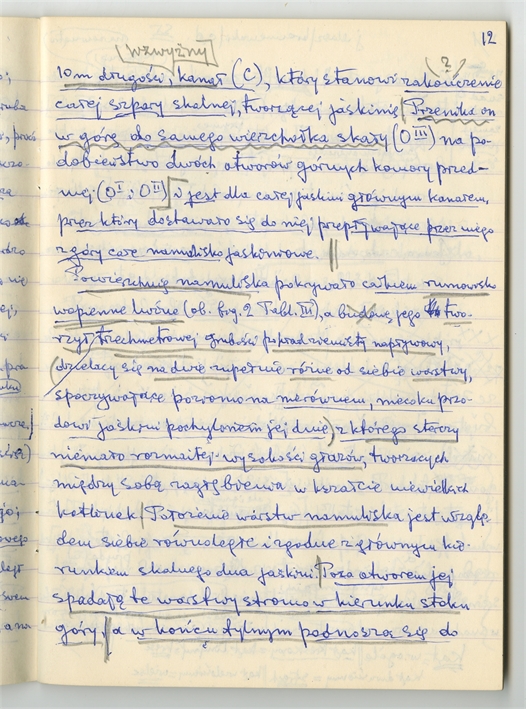 12
wzwyżny
10 m długości, kanał (C), który stanowi zakończenie (?)
całej szpary skalnej, tworzącej jaskinię. Przenika on
w górę do samego wierzchołka skały (O III) na po-
dobieństwo dwóch otworów górnych komory przed-
niej (O I i O II) i jest dla całej jaskini głównym kanałem,
przez który dostawało się do niej przepływające przez niego
z góry całe namulisko jaskiniowe.
Powierzchnię namuliska pokrywało całkiem rumowisko
wapienne luźne (ob. fig. 2 Tabl. III), a budowę jego two-
rzył trzechmetrowej grubości pokład ziemisty napływowy,
(dzielący się na dwie zupełnie różne od siebie warstwy,
spoczywające poziomo na nierównem, nieco ku przo-
dowi jaskini pochylonem jej dnie) z którego sterczy
niemało rozmaitej wysokości głazów, tworzących
między sobą zagłębienia w kształcie niewielkich
kotlinek. Położenie warstw namuliska jest wzglę-
dem siebie równoległe i zgodne z głównym kie-
runkiem skalnego dna jaskini. Poza otworem jej
spadają te warstwy stromo w kierunku stoku
góry, a w końcu tylnym podnoszą się do